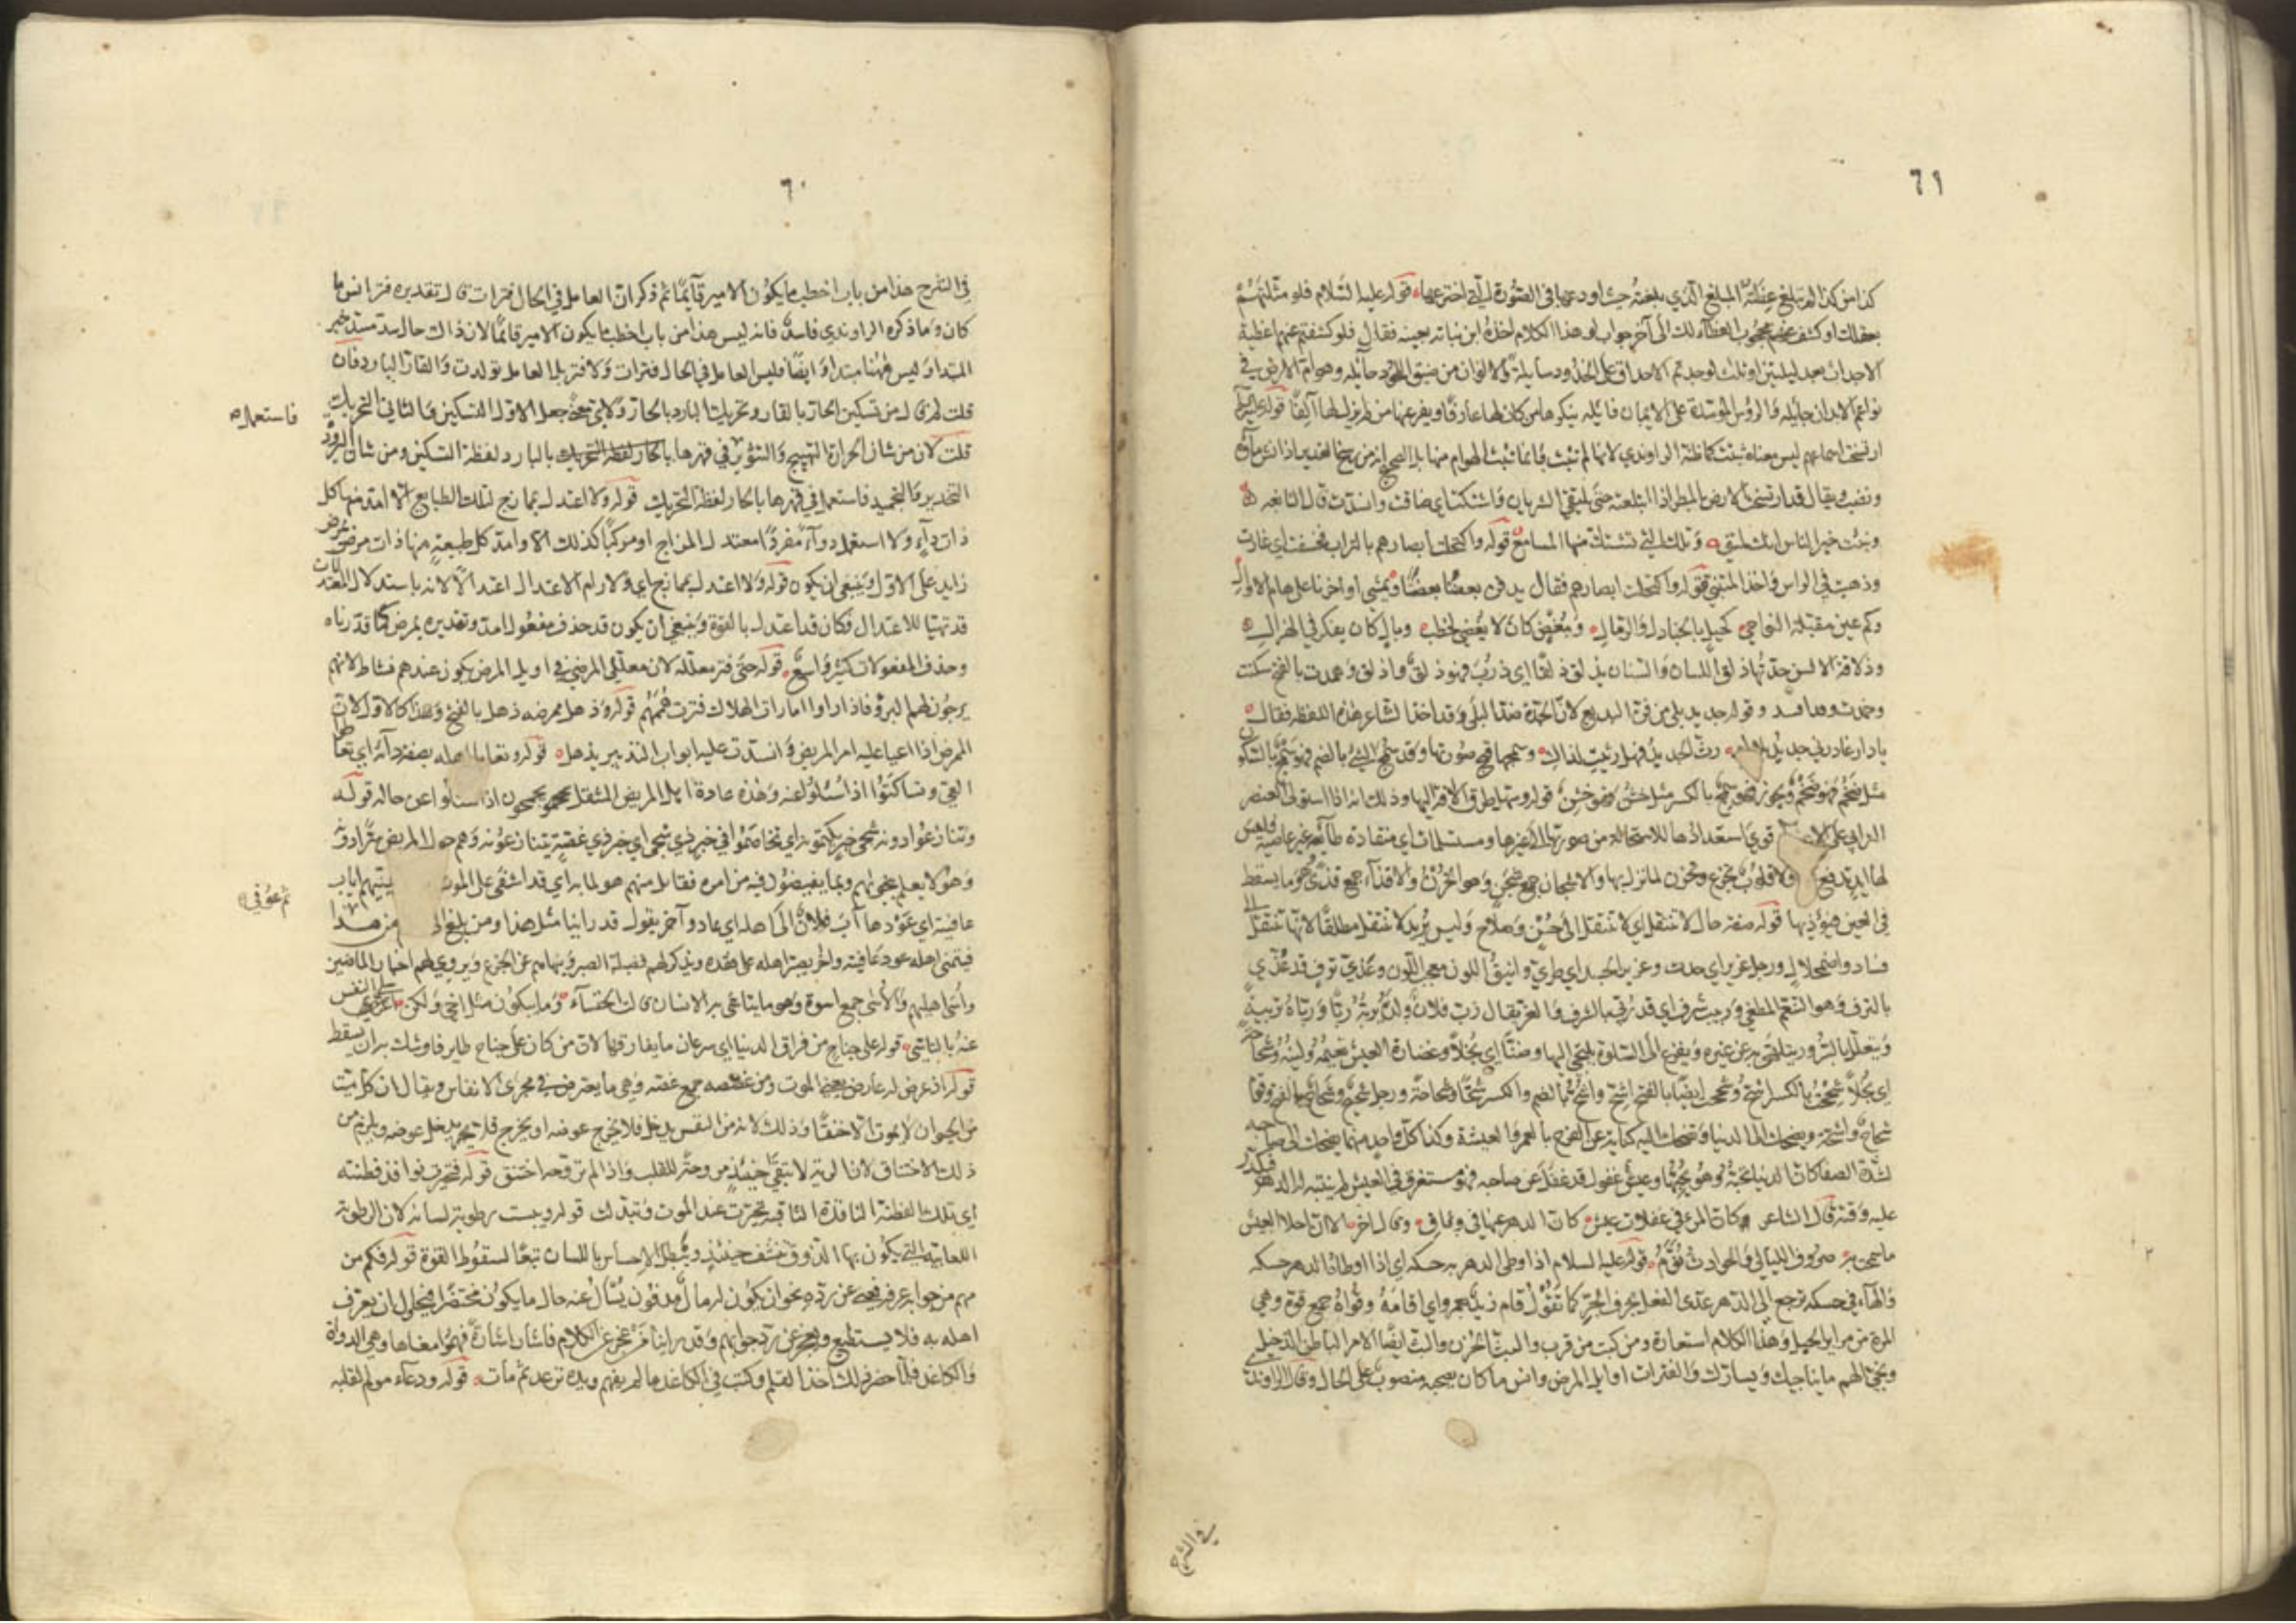 ٦١
كذا من كذا المبلغ الذي بلغته حيث اودعها في الصورة التي اخترعها قوله عليه السلام فلو مثلتهم
بعقلك او كشف عنهم محجوب الغطاء لك الى آخر جواب لو هذا الكلام اخذه ابن نباته بعينه فقال فلو كشفتم عنهم اغطية
الاجداث بعد ليلتين او ثلث لوجدتم الاحداق على الخدود سايلة والالوان من ضيق اللحود حايله وهوام الارض في
نواعم الابدان جايله والرؤس الموسدة على الايمان زايله ينكرها من كان لها عارفا ويفر عنها من لم يزل لها آلفا قوله عليه السلم
ارتسخت اسماعهم ليس معناه ثبتت كما ظنه الراوندي لانها لم تثبت وانما ثبتت الهوام فيها بل الصحيح انه من رسخ الغدير اذا نش ماؤه
ونضب ويقال قد ارتسخت الارض بالمطر اذا ابتلعته حتى يلتقي الثريان واستكت اي ضاقت وانسدت قال النابغه
ونبئت خير الناس انك لمتني وتلك التي تستك منها المسامع قوله واكتحلت ابصارهم بالتراب فخسفت اي غارت
وذهبت في الراس واخذ المتنبي قوله واكتحلت ابصارهم فقال يدفن بعضنا بعضا ويمشي اواخرنا على هام الاوالي
وكم عين مقبلة النواحي كحيل بالجنادل والرمال ومغض كان لا يغضي لخطب وبال كان يفكر في الهزال
وذلاقة الالسن حدتها ذلق اللسان والسنان يذلق ذلقا اي ذرب فهو ذلق واذلق وهمدت بالفتح سكنت
وخمدت وعاث افسد وقوله جديد بلى من فن البديع لان الجدة ضد البلى وقد اخذ الشاعر هذه اللفظه فقال
يا دار غادرني جديد بلاك رث الجديد فهل رثيت لذاك وسمجها قبح صورتها وقد سمج الشئ بالضم فهو سمج بالسكون
مثل ضخم فهو ضخم ويجوز فهو سمج بالكسر مثل خشن فهو خشن قوله وسهل طرق الآفة اليها وذلك انه اذا استولى العنصر
الترابي على الاعضاء قوي استعدادها للاستحاله من صورتها الى غيرها ومستسلمات اي منقادة طائعه غير عاصيه فليس
لها ايد تدفع ولا قلوب تجزع وتحزن لما نزل بها والاشجان جمع شجن وهو الحزن والاقذاء جمع قذى وهو ما يسقط
في العين فيؤذيها قوله صفة حال لا تنتقل اي لا تنتقل الى حسن وصلاح وليس يريد لا تنتقل مطلقا لانها تنتقل الى
فساد واضمحلال ورجل عزيز اي حدث وعزيز الجسد اي طري وانيق اللون معجب اللون وغذي ترف قد غذي
بالترف وهو التنعم المطغي وربيب شرف اي قد ربي بالشرف والعز يقال رب فلان ولده يربه ربا ورباه تربية
ويتعلل بالسرور يتلهى به عن غيره ويفزع الى السلوة يلتجي اليها وضنا اي بخلا وغضارة العيش نعيمه ولينه وشحاحة
اي بخلا شححت بالكسر اشح وشححت ايضا بالفتح اشح واشح بالضم والكسر شحا وشحاحة ورجل شحيح وشحاح بالفتح وقوم
شحاح واشحة ويضحك الى الدنيا وتضحك اليه كناية عن الفرح بالعمر والعيشة وكذا كل واحد منهما يضحك الى صاحبه
لشدة الصفا كان الدنيا تحبه وهو يحبها وعيش غفول قد غفل عن صاحبه فهو مستغرق في العيش لم ينتبه له الدهر فيكدر
عليه وقته قال الشاعر كان المرء في غفلات عيش كان الدهر عنها في وثاق وقال اخر الا ان احلا العيش
ما سمحت به صروف الليالي والحوادث نوم قوله عليه السلام اذا وطئ الدهر به حسكه اي اذا اوطاه الدهر حسكه
والهاء في حسكه ترجع الى الدهر عدى الفعل بحرف الجر كما تقول قام زيد بعمرو اي اقامه وقواه جمع قوة وهي
المرة من مراير الحبل وهذا الكلام استعارة ومن كتب من قرب والبث الحزن والبث ايضا الامر الباطن الدخيل
ونجي الهم ما يناجيك ويسارك والفترات اوايل المرض وانس ما كان بصحته منصوب على الحال وقال الراوندي
في الشرح
٦٠
في الشرح هذا من باب اخطب ما يكون الامير قائما ثم ذكر ان العامل في الحال فترات قال تقديره فترا انس ما
كان وما ذكره الراوندي فاسد فانه ليس هذا من باب اخطب ما يكون الامير قائما لان ذاك حال سد مسد خبر
المبتدا وليس ههنا مبتدا وايضا فليس العامل في الحال فترات ولا فتر بل العامل تولدت والقار البارد فان
قلت لم قال من تسكين الحار بالقار وتحريك البارد بالحار ولاي معنى جعل الاول التسكين والثاني التحريك
قلت لان من شان الحرارة التهييج والتثوير في قهرها بالبارد لفظة التسكين ومن شان البرودة
التخدير والتجميد فاستعمل في قهرها بالحار لفظة التحريك قوله ولا اعتدل بممازج لتلك الطبايع الا امد منها كل
ذات داء ولا استعمل دواء مفردا معتدل المزاج او مركبا كذلك الا وامد كل طبيعة منها ذات مرض بمرض
زايد على الاول وينبغي ان يكون قوله ولا اعتدل بممازج اي ولا رام الاعتدال اعتدالا لانه باستدلال المعتدلات
قد تهيا للاعتدال فكان قد اعتدل بالقوة وينبغي ان يكون قد حذف مفعول امد وتقديره بمرض كما قدرناه
وحذف المفعولات كثير واسع قوله حتى فتر معلله لان معللي المرضى في اوايل المرض يكون عندهم نشاط لانهم
يرجون لهم البرؤ فاذا راوا امارات الهلاك فترت هممهم قوله وذهل ممرضه ذهل بالفتح وهذا كالاول لان
الممرض اذا اعيا عليه امر المريض وانسدت عليه ابواب التدبير يذهل قوله وتعايا اهله بصفة دائه اي تعاطوا
العي وتساكتوا اذا سئلوا عنه وهذه عادة اهل المريض المثقل يجمجمون اذا سئلوا عن حاله قوله
وتنازعوا دونه شجي خبر يكتمونه اي تخاصموا في خبر ذي شجى اي خبر ذي غصة يتنازعونه وهم حول المريض سرا دونه
وهو لا يعلم بنجواهم وبما يفيضون فيه من امره فقايل منهم هو لما به اي قد اشفى على الموت يمنيهم اياب
عافيته اي عودها آب فلان الى اهله اي عاد وآخر يقول قد راينا مثل هذا ومن بلغ الى من هذا
فيتمنى اهله عود عافيته واخر يصبر اهله على فقده ويذكر لهم فضيلة الصبر وينهاهم عن الجزع ويروي لهم اخبار الماضين
واسى اهليهم والاسى جمع اسوة وهو ما يتاسى به الانسان قالت الخنساء وما يبكون مثل اخي ولكن اعزي النفس
عنه بالتاسي قوله على جناح من فراق الدنيا اي سرعان ما يفارقها لان من كان على جناح طاير فاوشك به ان يسقط
قوله اذ عرض له عارض يعني الموت ومن غصصه جمع غصة وهي ما يعترض في مجرى الانفاس ويقال ان كل ميت
من الحيوان لا يموت الا خنقا وذلك لانه من النفس يدخل فلا يخرج عوضه او يخرج فلا يدخل عوضه ويلزم من
ذلك الاختناق لان الرئة لا تبقى حينئذ مروحة للقلب واذا لم تروحه اختنق قوله فتحيرت نوافذ فطنته
اي تلك الفطنة النافذة الثاقبه تحيرت عند الموت وتبلدت قوله ويبست رطوبة لسانه لان الرطوبة
اللعابية التي يكون بها الذوق تنشف حينئذ ويبطل الاحساس باللسان تبعا لسقوط القوة قوله فكم من
مهم من جوابه عرفه فعي عن رده نحو ان يكون له مال مدفون يسأل عنه حال ما يكون محتضرا فيحاول ان يعرف
اهله به فلا يستطيع ويعجز عن رد جوابهم وقد راينا من عجز عن الكلام فاشار اشارة فهموا معناها وهي الدواة
والكاغد فلما حضر ذلك اخذ القلم وكتب في الكاغد ما لم يفهم ويده ترعد ثم مات قوله ودعاء مولم لقلبه
فاستعمل
ثم عوفي